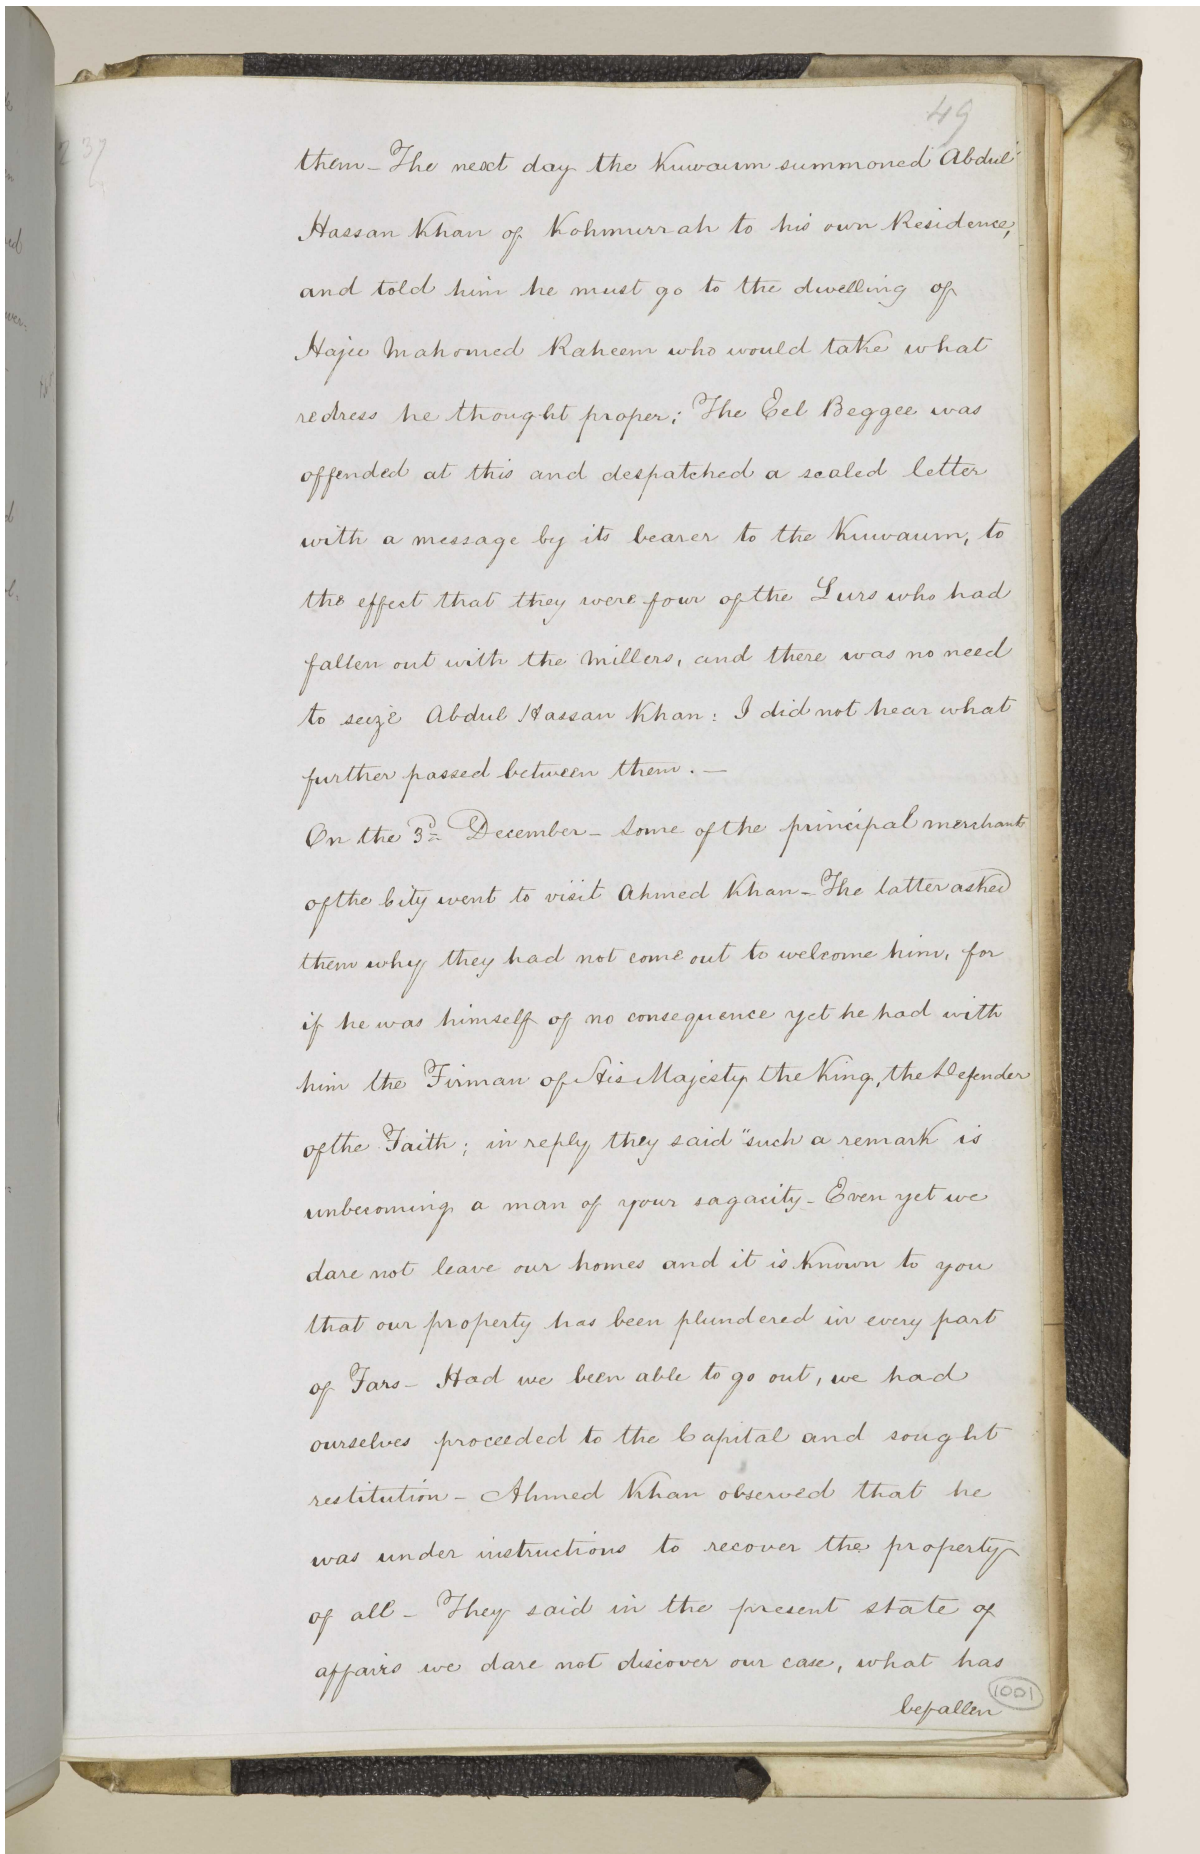 49
237
them_ The next day the Kuwaum summoned Abdul
Hassan Khan of Kohmurrah to his own Residence,
and told him he must go to the dwelling of
Hajee Mahomed Raheem who would take what
redress he thought proper; The Eel Beggee was
offended at this and despatched a sealed letter
with a message by its bearer to the Kuwaum, to
the effect that they were four of the Lurs who had
fallen out with the Millers, and there was no need
to seize Abdul Hassan Khan: I did not hear what
further passed between them. —
On the 3d December_ Some of the principal merchants
of the City went to visit Ahmed Khan_ The latter asked
them why they had not come out to welcome him, for
if he was himself of no consequence yet he had with
him the Firman of His Majesty the King, the Defender
of the Faith; in reply they said "such a remark is
unbecoming a man of your sagacity_ Even yet we
dare not leave our homes and it is known to you
that our property has been plundered in every part
of Fars_ Had we been able to go out, we had
ourselves proceeded to the Capital and sought
restitution_ Ahmed Khan observed that he
was under instructions to recover the property
of all_ They said in the present state of
affairs we dare not discover our case, what has
befallen
1001